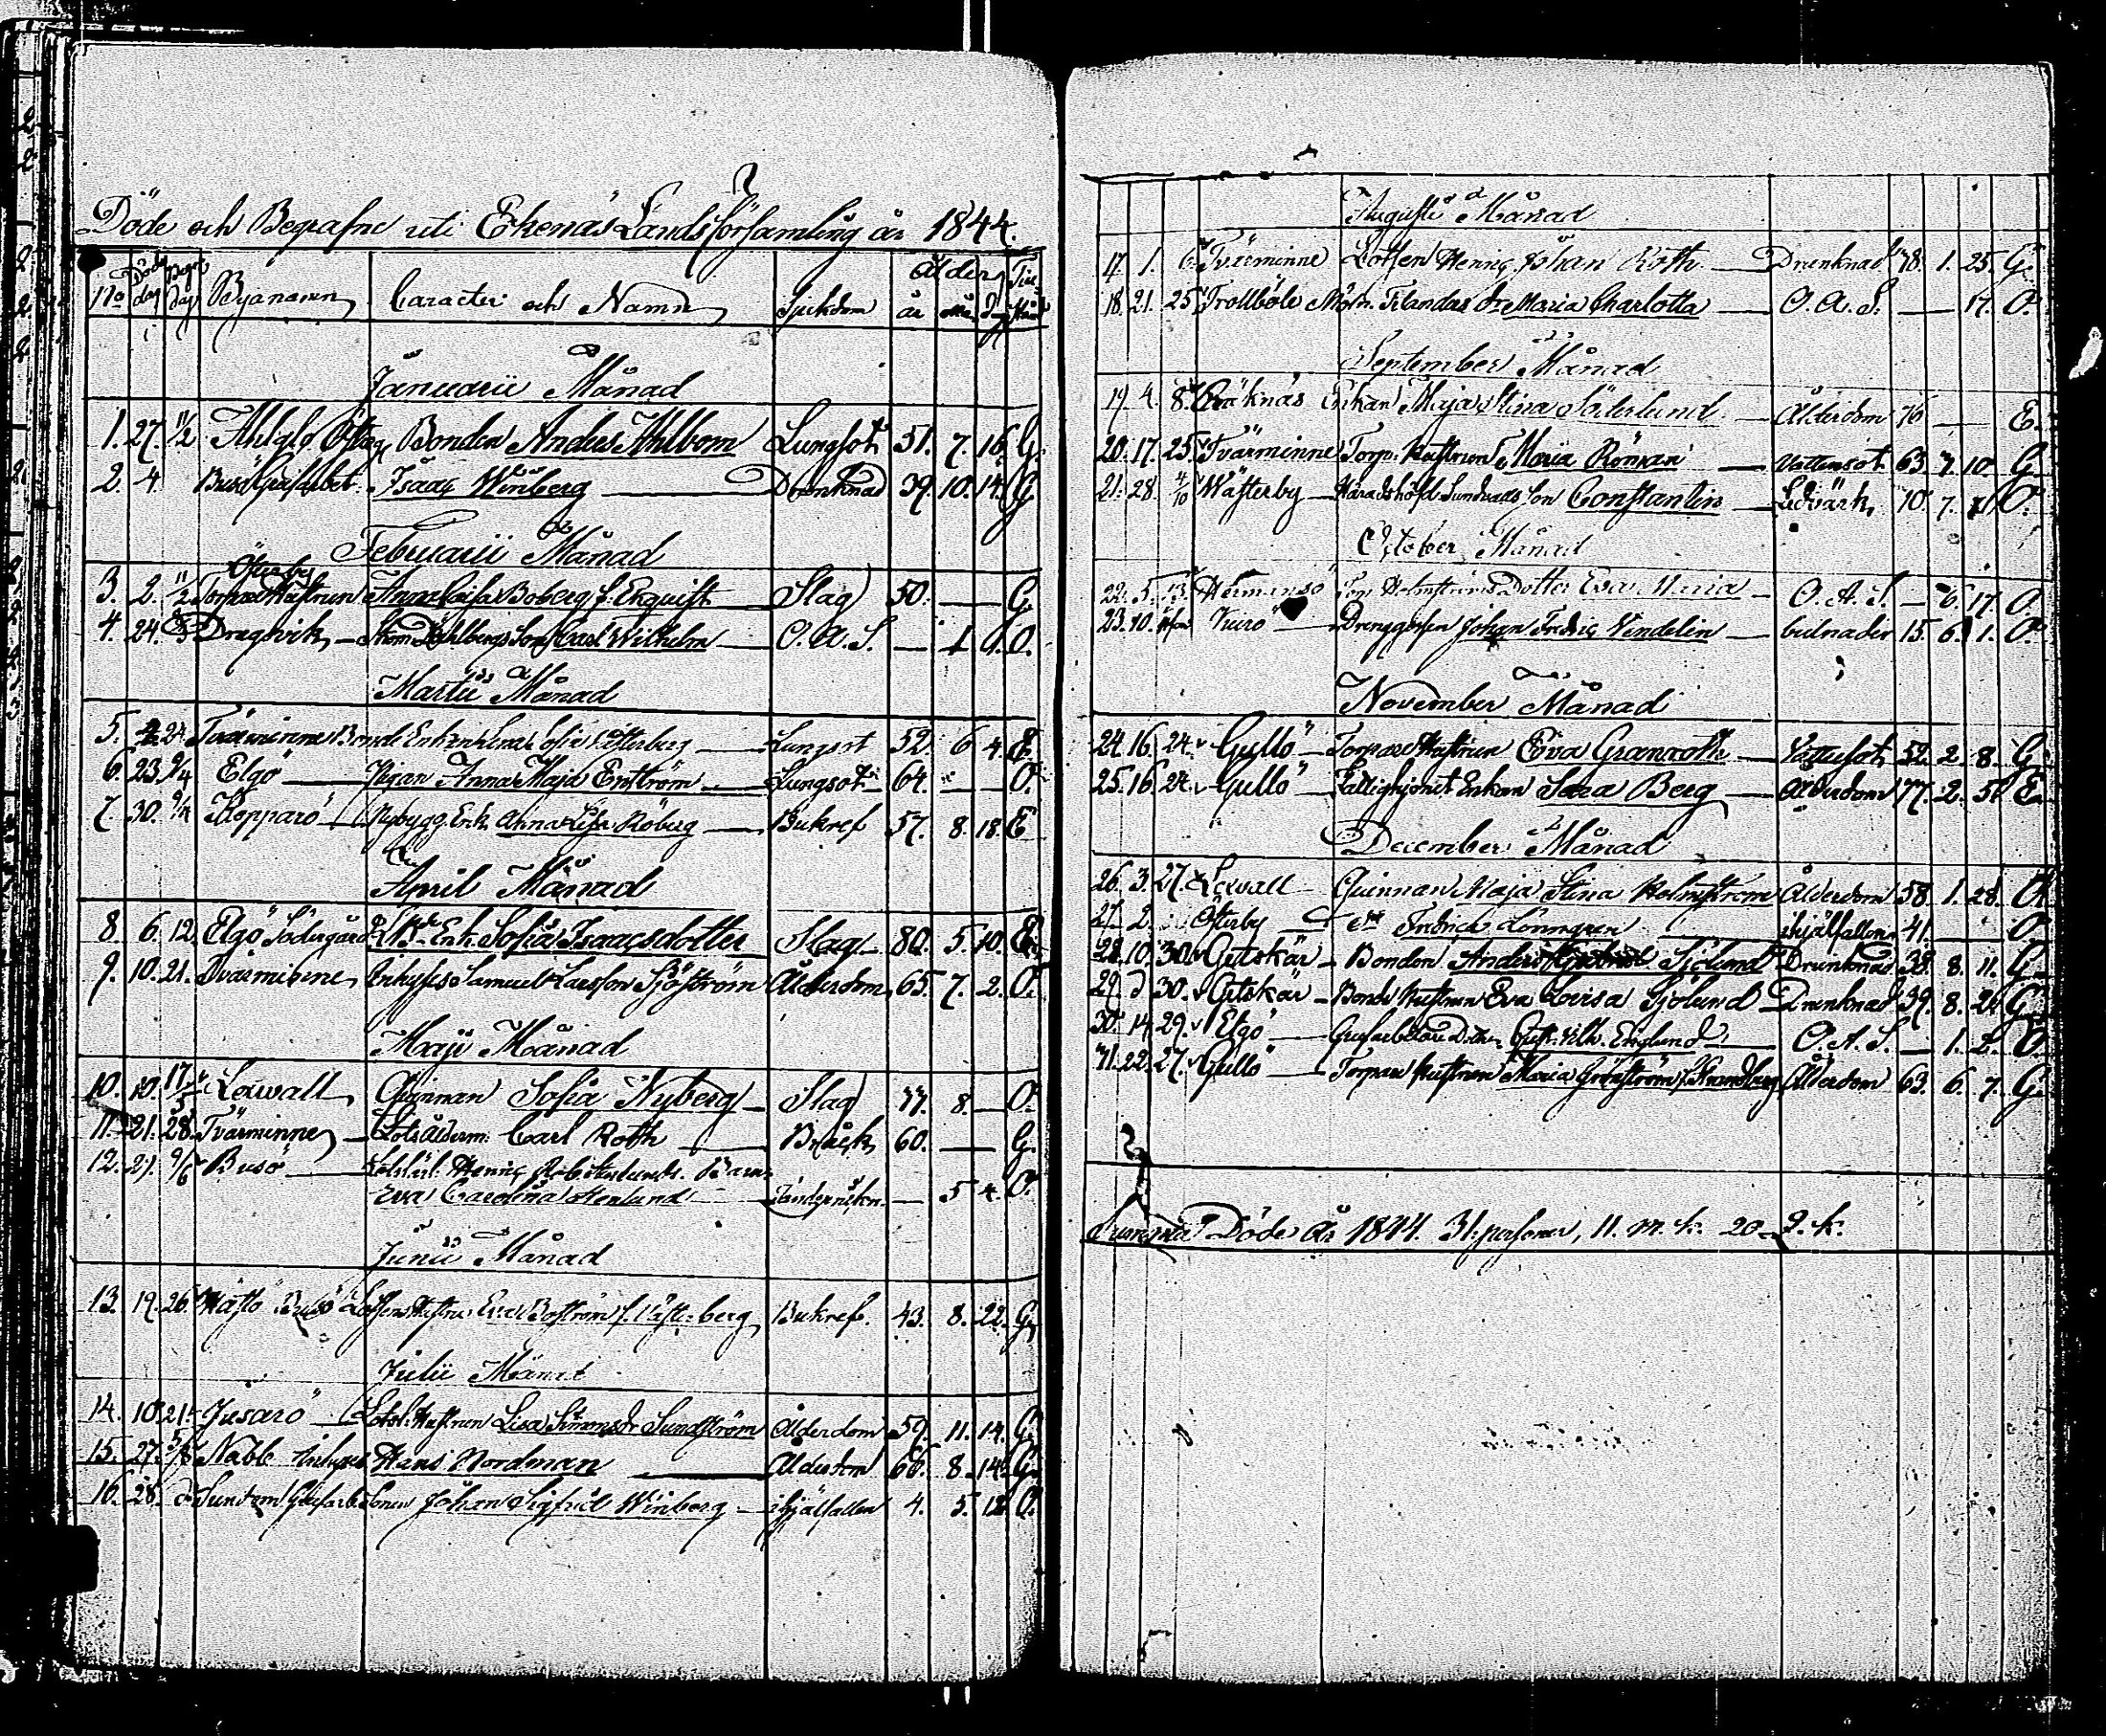 Döde och Begrafne uti Ekenäs Landsförsamling år 1844.
No Döds dag Begr. dag Byanamn Caracter och Namn Sjukdom Ålder år mån. d.
Januarii Månad
1. 27. 11/2 Bonden Anders Ahlbom Lungsot 51. 7. 16. G.
2. 4. Busö Isaac Winberg Drunknad 39. 10. 14. G
Februarii Månad
Österby
3. 2. 11/2 Torpare Hustrun Anna Caisa Boberg f. Enquist Slag 50. — G.
4. 24. Dragsvik Dahlbergs Son Carl Wilhelm O. A. S. — 1 9. O.
Martii Månad
5. 24. Tvärminne Bonde Enkan Lena Sofia Österberg Lungsot 52. 6 4. E
6. 23 9/4 Elgö Pigan Anna Maja Enström Lungsot 64. — O.
7. 30. 9/4 Kopparö Nybygg. Enk. Anna Lisa Röberg Bukref 57. 8. 18. E
April Månad
8. 6. 12. Elgö Södergård Enk. Sofia Isaacsdotter Slag 80. 5. 10. E.
9. 10. 21. Tvärminne Inhyses Samuel Larsson Sjöström Ålderdom 65. 7. 2. O.
Maji Månad
10. 10. 17/5 Lexvall Quinnan Sofia Nyberg Slag 77. 8. — O.
11. 21. 28. Tvärminne Lots Ålderm. Carl Roth Bråck 60. — G.
12. 29. 9/6 Busö Henric Barn
Eva Carolina Stenlund — 5 4. O.
Junii Månad
13. 19. 26. Busö Lotsens Hustru Eva Boström f. Österberg Bukref. 43. 8. 22. G
Julii Månad
14. 10. 21. Jusarö Lotsl. Hustrun Lisa Simonsdr Sundström Ålderdom 59. 11. 14. G.
15. 27. 5/8 Nabb Inhyses Hans Nordman Ålderdom 66. 8. 14. G.
16. 28. Grufarb. Sonen Johan Sigfrid Winberg ihjälfallen 4. 5. 12. O.
Augusti Månad
17. 1. 6. Tvärminne Lotsen Henric Johan Roth Drunknad 78. 1. 25. G.
18. 21. 25. Trollböle Dr Maria Charlotta O. A. S. — 17. O.
September Månad
19. 4. 8. Enkan Maja Stina Söderlund Ålderdom 76 — E.
20. 17. 25. Tvärminne Torp. Hustrun Maria Röman Vattusot 63. 7. 10 G
21. 28. 4/10 Wästerby Son Constantin 10. 7. O.
October Månad
22. 5. 13. Hermansö Holmströms Dotter Eva Maria O. A. S. — 6. 17. O.
23. 10. Drenggossen Johan Fredric Vendelin 15. 6. 1. O.
November Månad
24. 16. 24. Gullö Torpare Hustrun Eva Granroth Vattusot 52. 2. 8. G
25. 16. 24. Gullö Fattighjonet Enkan Sara Berg Ålderdom 77. 2. 5. E.
December Månad
26. 3. 27. Lexvall Quinnan Maja Stina Holmström Ålderdom 58. 1. 28. O.
27. 2. Österby Fredrich Lönngren ihjälfallen 41. — O
28. 10. 30. Getskär Bonden Anders Sjölund Drunknad 38. 8. 11. G
29. d 30. Getskär Bonde Hustrun Eva Lovisa Sjölund Drunknad 39. 8. 2. G
30. 14. 29. Elgö Englund O. A. S. — 1. 2. O.
31. 22. 27. Gullö Torpare Hustrun Maria Grönström f. Strandberg Ålderdom 63. 6. 7. G.
Summa Döde År 1844. 31. personer, 11. m. k. 20 q. k.